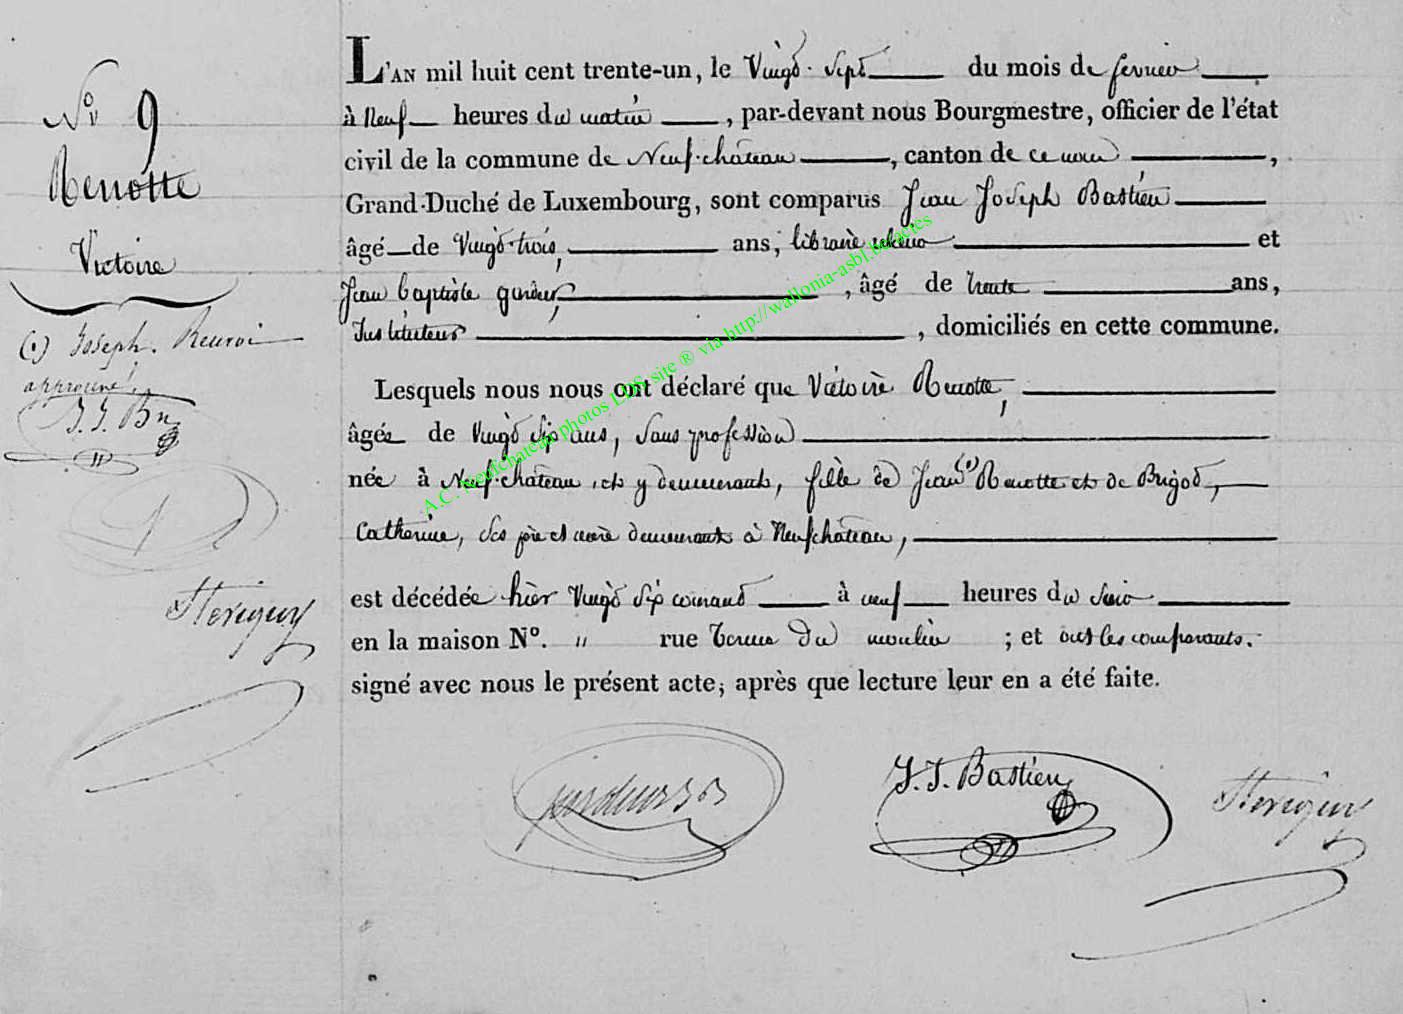 N.º 9
Renotte
Victoire
(1) Joseph.
approuvé,
J. J. Bn
L'AN mil huit cent trente-un, le Vingt-Sept du mois de fevrier
à Neuf heures du matin, par-devant nous Bourgmestre, officier de l'état
civil de la commune de Neuf-château, canton de ce nom,
Grand-Duché de Luxembourg, sont comparus Jean Joseph Bastien
âgé de Vingt-trois, ans, libraire relieur et
Jean baptiste, âgé de trente ans,
Instituteur, domiciliés en cette commune.
Lesquels nous nous ont déclaré que Victoire Renotte,
âgée de Vingt Six ans, Sans profession
née à Neuf-château, et y demeurant, fille de Jean (1) Renotte et de Brigod,
Catherine, Ses père et mère demeurants à Neufchâteau,
est décédée hier Vingt Six courant à neuf heures du Soir
en la maison N°. " rue du moulin ; et ont les comparants.
signé avec nous le présent acte, après que lecture leur en a été faite.
J. J. Bastien
A.C. Neufchateau photos LDS site ® via http://wallonia-asbl.be/actes